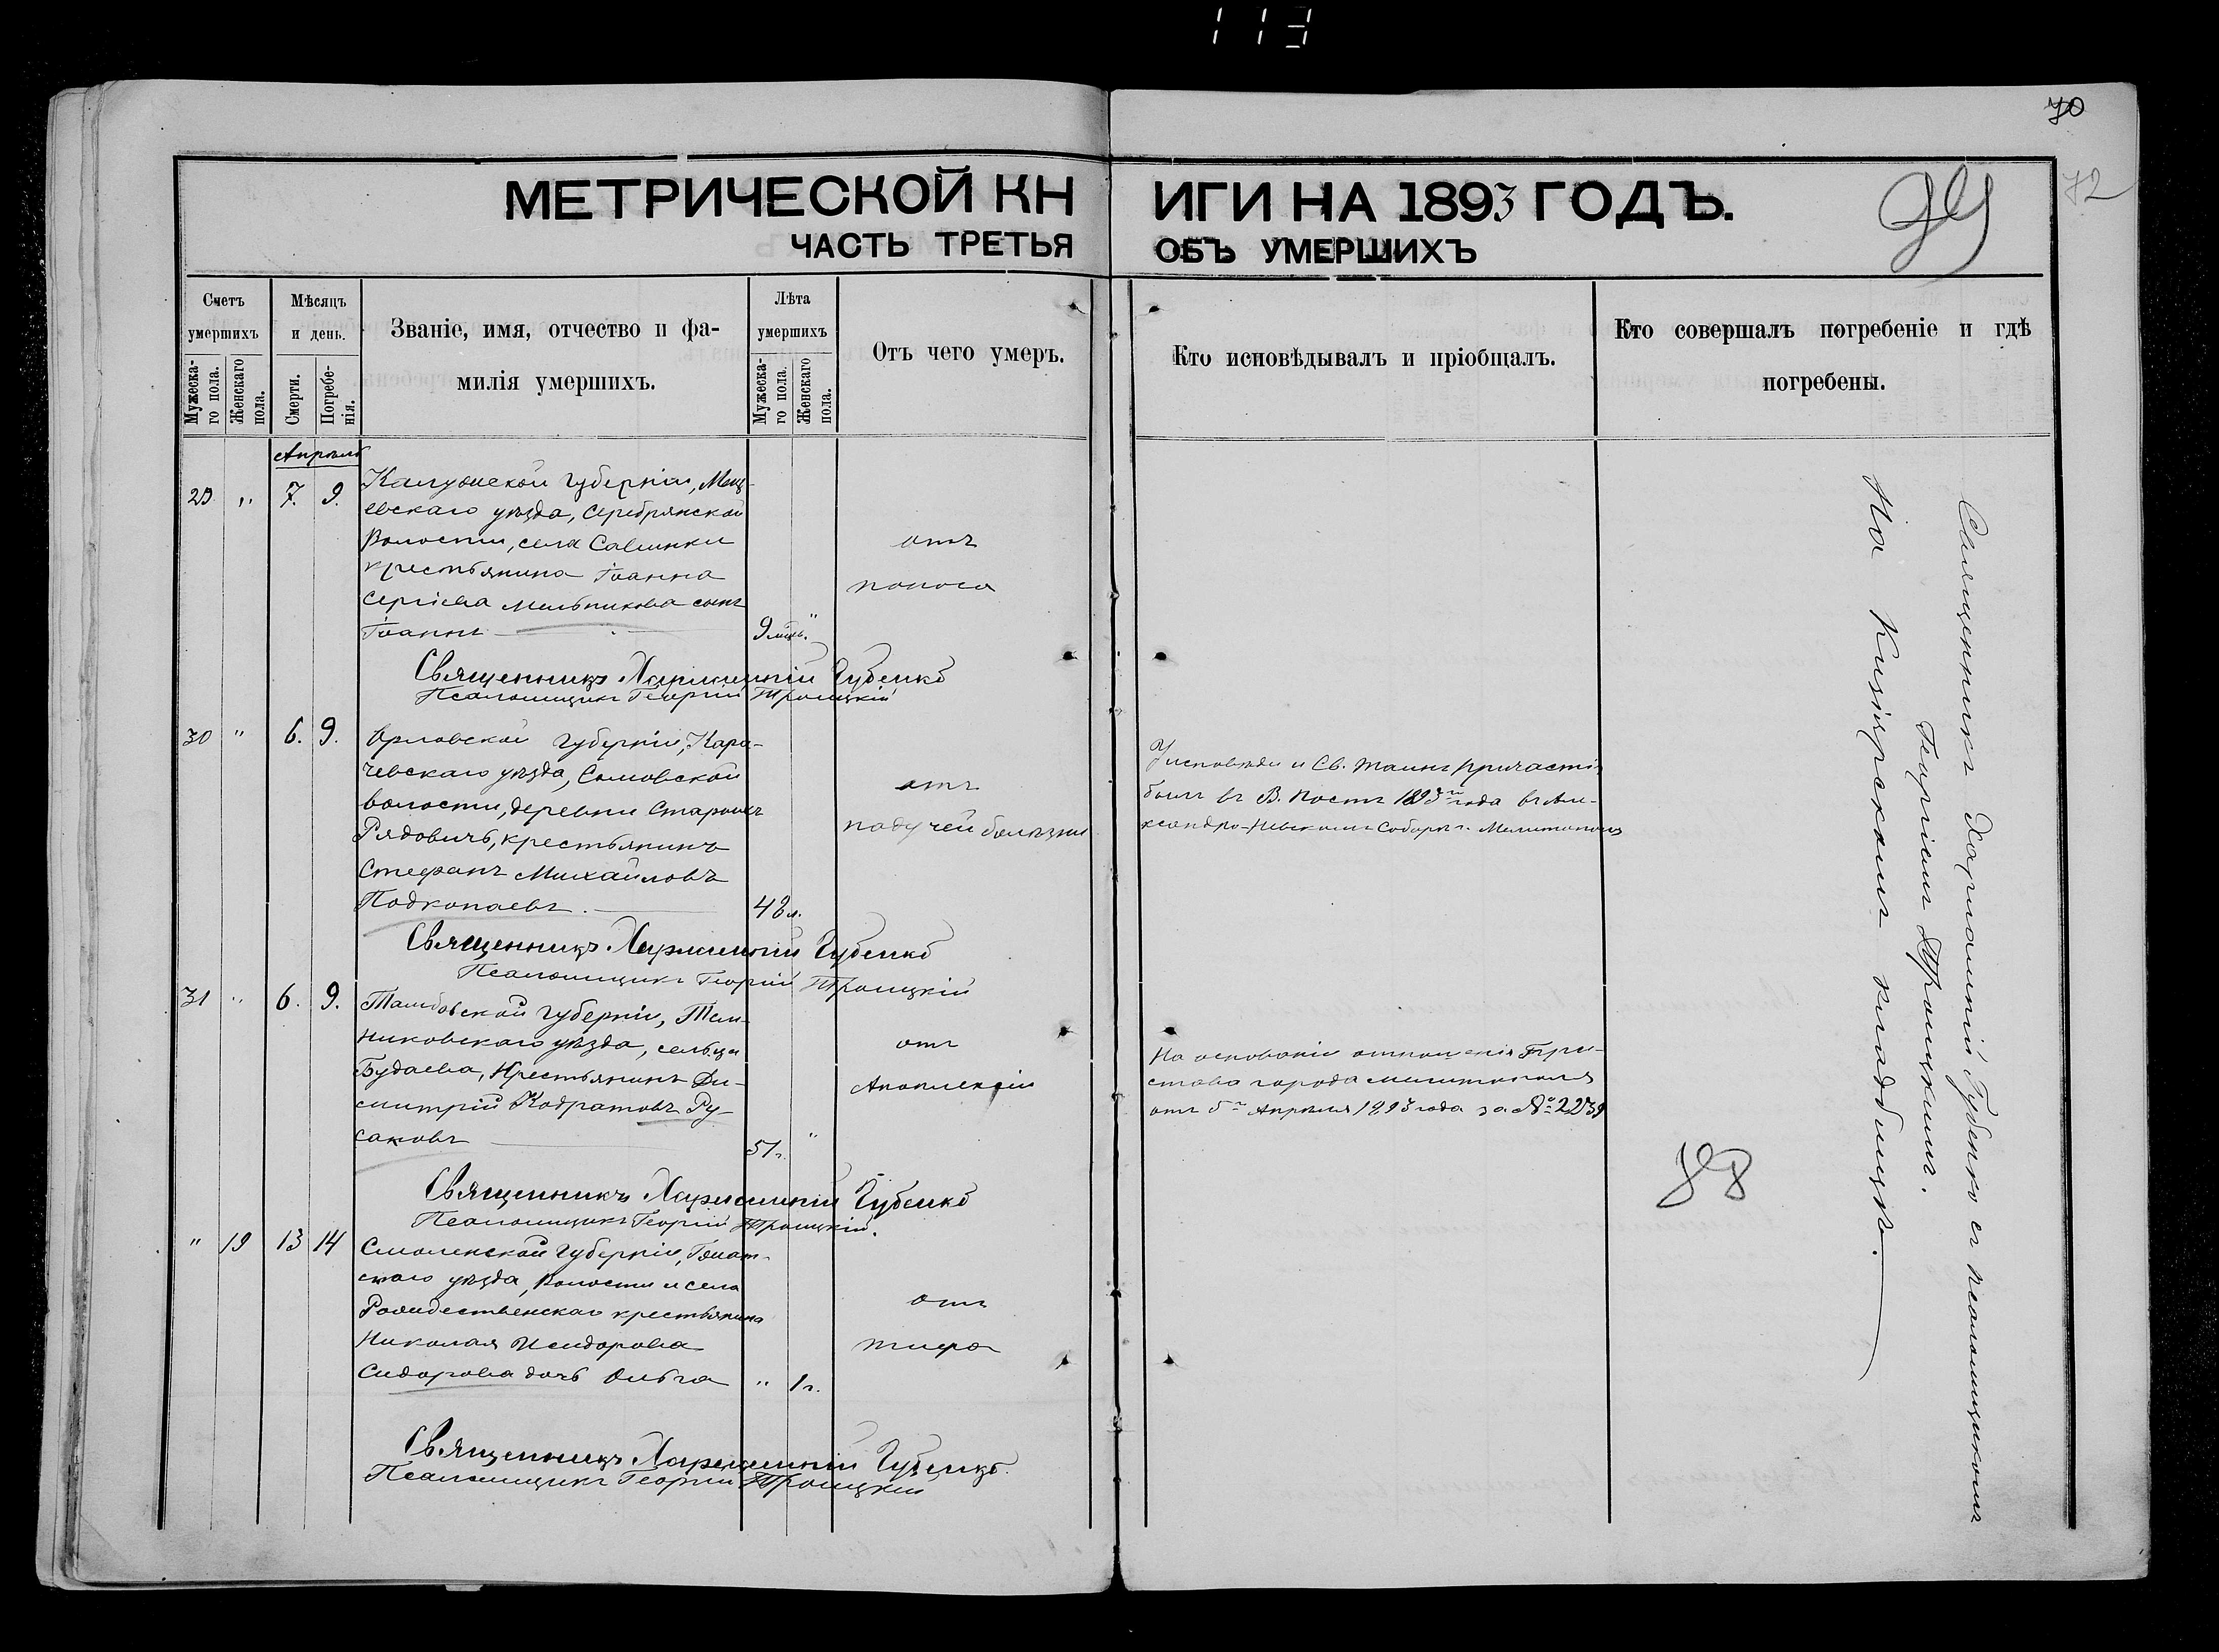 113
70
72
МЕТРИЧЕСКОЙ КНИГИ НА 1893 ГОДЪ.
ЧАСТЬ ТРЕТЬЯ ОБЪ УМЕРШИХЪ
Счетъ умершихъ
Мужеска-го пола.
Женскаго пола.
Мѣсяцъ и день.
Смерти.
Погребе-нія.
Званіе, имя, отчество и фа-
милія умершихъ.
Лѣта умершихъ
Мужеска-го пола.
Женскаго пола.
Отъ чего умеръ.
Кто исповѣдывалъ и пріобщалъ.
Кто совершалъ погребеніе и гдѣ
погребены.
Апрѣль
29 " 7. 9.
Калужской губерніи, Мещ-
евскаго уѣзда, Серебрянской
Волости, села Савинки
крестьянина Іоанна
Сергіева Мельникова сынъ
Іоаннъ
9 мѣс. "
отъ
поноса
Священникъ Харлампій Губенко
Псаломщикъ Георгій Троицкій
30 " 6. 9.
Орловской губерніи, Кара-
чевскаго уѣзда, Самовской
волости, деревни Староикъ
Рядовичъ, крестьянинъ
Стефанъ Михайловъ
Подкопаевъ.
48 л.
отъ
падучей болѣзни
У исповѣди и Св. таинъ причастія
былъ въ В. постъ 1893 года въ Але-
ксандро-Невскомъ Соборѣ г. Мелитополя
Священникъ Харлампій Губенко
Псаломщикъ Георгій Троицкій
31 " 6. 9.
Тамбовской губерніи, Тем-
никовскаго уѣзда, сельца
Будаева, Крестьянинъ Ди-
митрій Кодратовъ Ру-
саковъ
51 г. "
отъ
Апоплексіи
На основаніи отношенія При-
става города Мелитополя
отъ 5го Апрѣля 1893 года за № 2239
Священникъ Харлампій Губенко
Псаломщикъ Георгій Троицкій.
" 19 13 14
Смоленской губерніи, Гжат-
скаго уѣзда, Волости и села
Рождественскаго крестьянина
Николая Исидорова
Сидорова дочь Ольга
" 1 г.
отъ
тифа
Священникъ Харлампій Губенко.
Псаломщикъ Георгій Троицкій
Священникъ Харлампій Губенко съ псаломщикомъ
Георгіемъ Троицкимъ.
На Кизіярскомъ кладбищѣ.